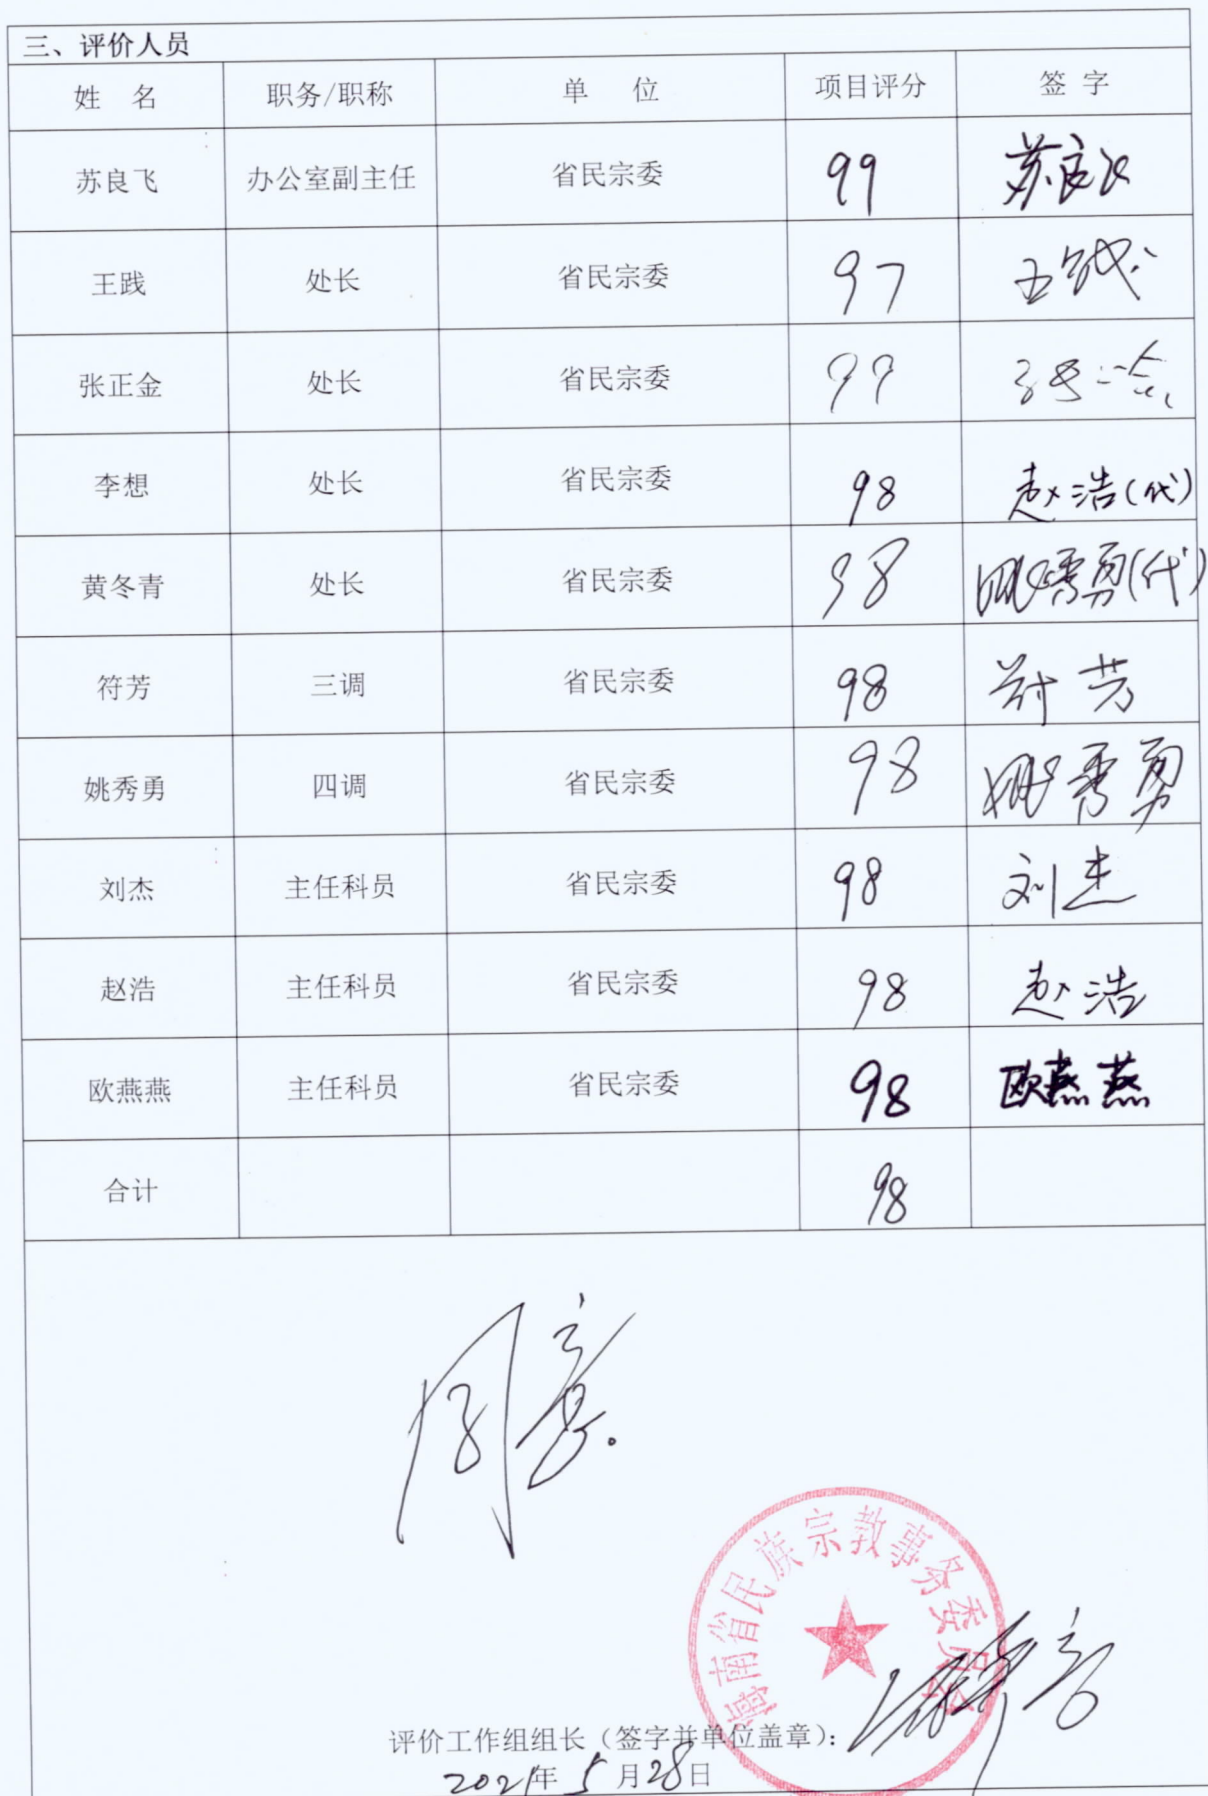 三、评价人员
姓 名 职务/职称 单 位 项目评分 签 字
苏良飞 办公室副主任 省民宗委 99 苏良飞
王践 处长 省民宗委 97 王践
张正金 处长 省民宗委 97 张正金
李想 处长 省民宗委 98 赵浩(代)
黄冬青 处长 省民宗委 98 姚秀勇(代)
符芳 三调 省民宗委 98 符芳
姚秀勇 四调 省民宗委 98 姚秀勇
刘杰 主任科员 省民宗委 98 刘杰
赵浩 主任科员 省民宗委 98 赵浩
欧燕燕 主任科员 省民宗委 98 欧燕燕
合计 98
同意.
海南省民族宗教事务委员会
评价工作组组长（签字并单位盖章）:
2021年 5 月28日